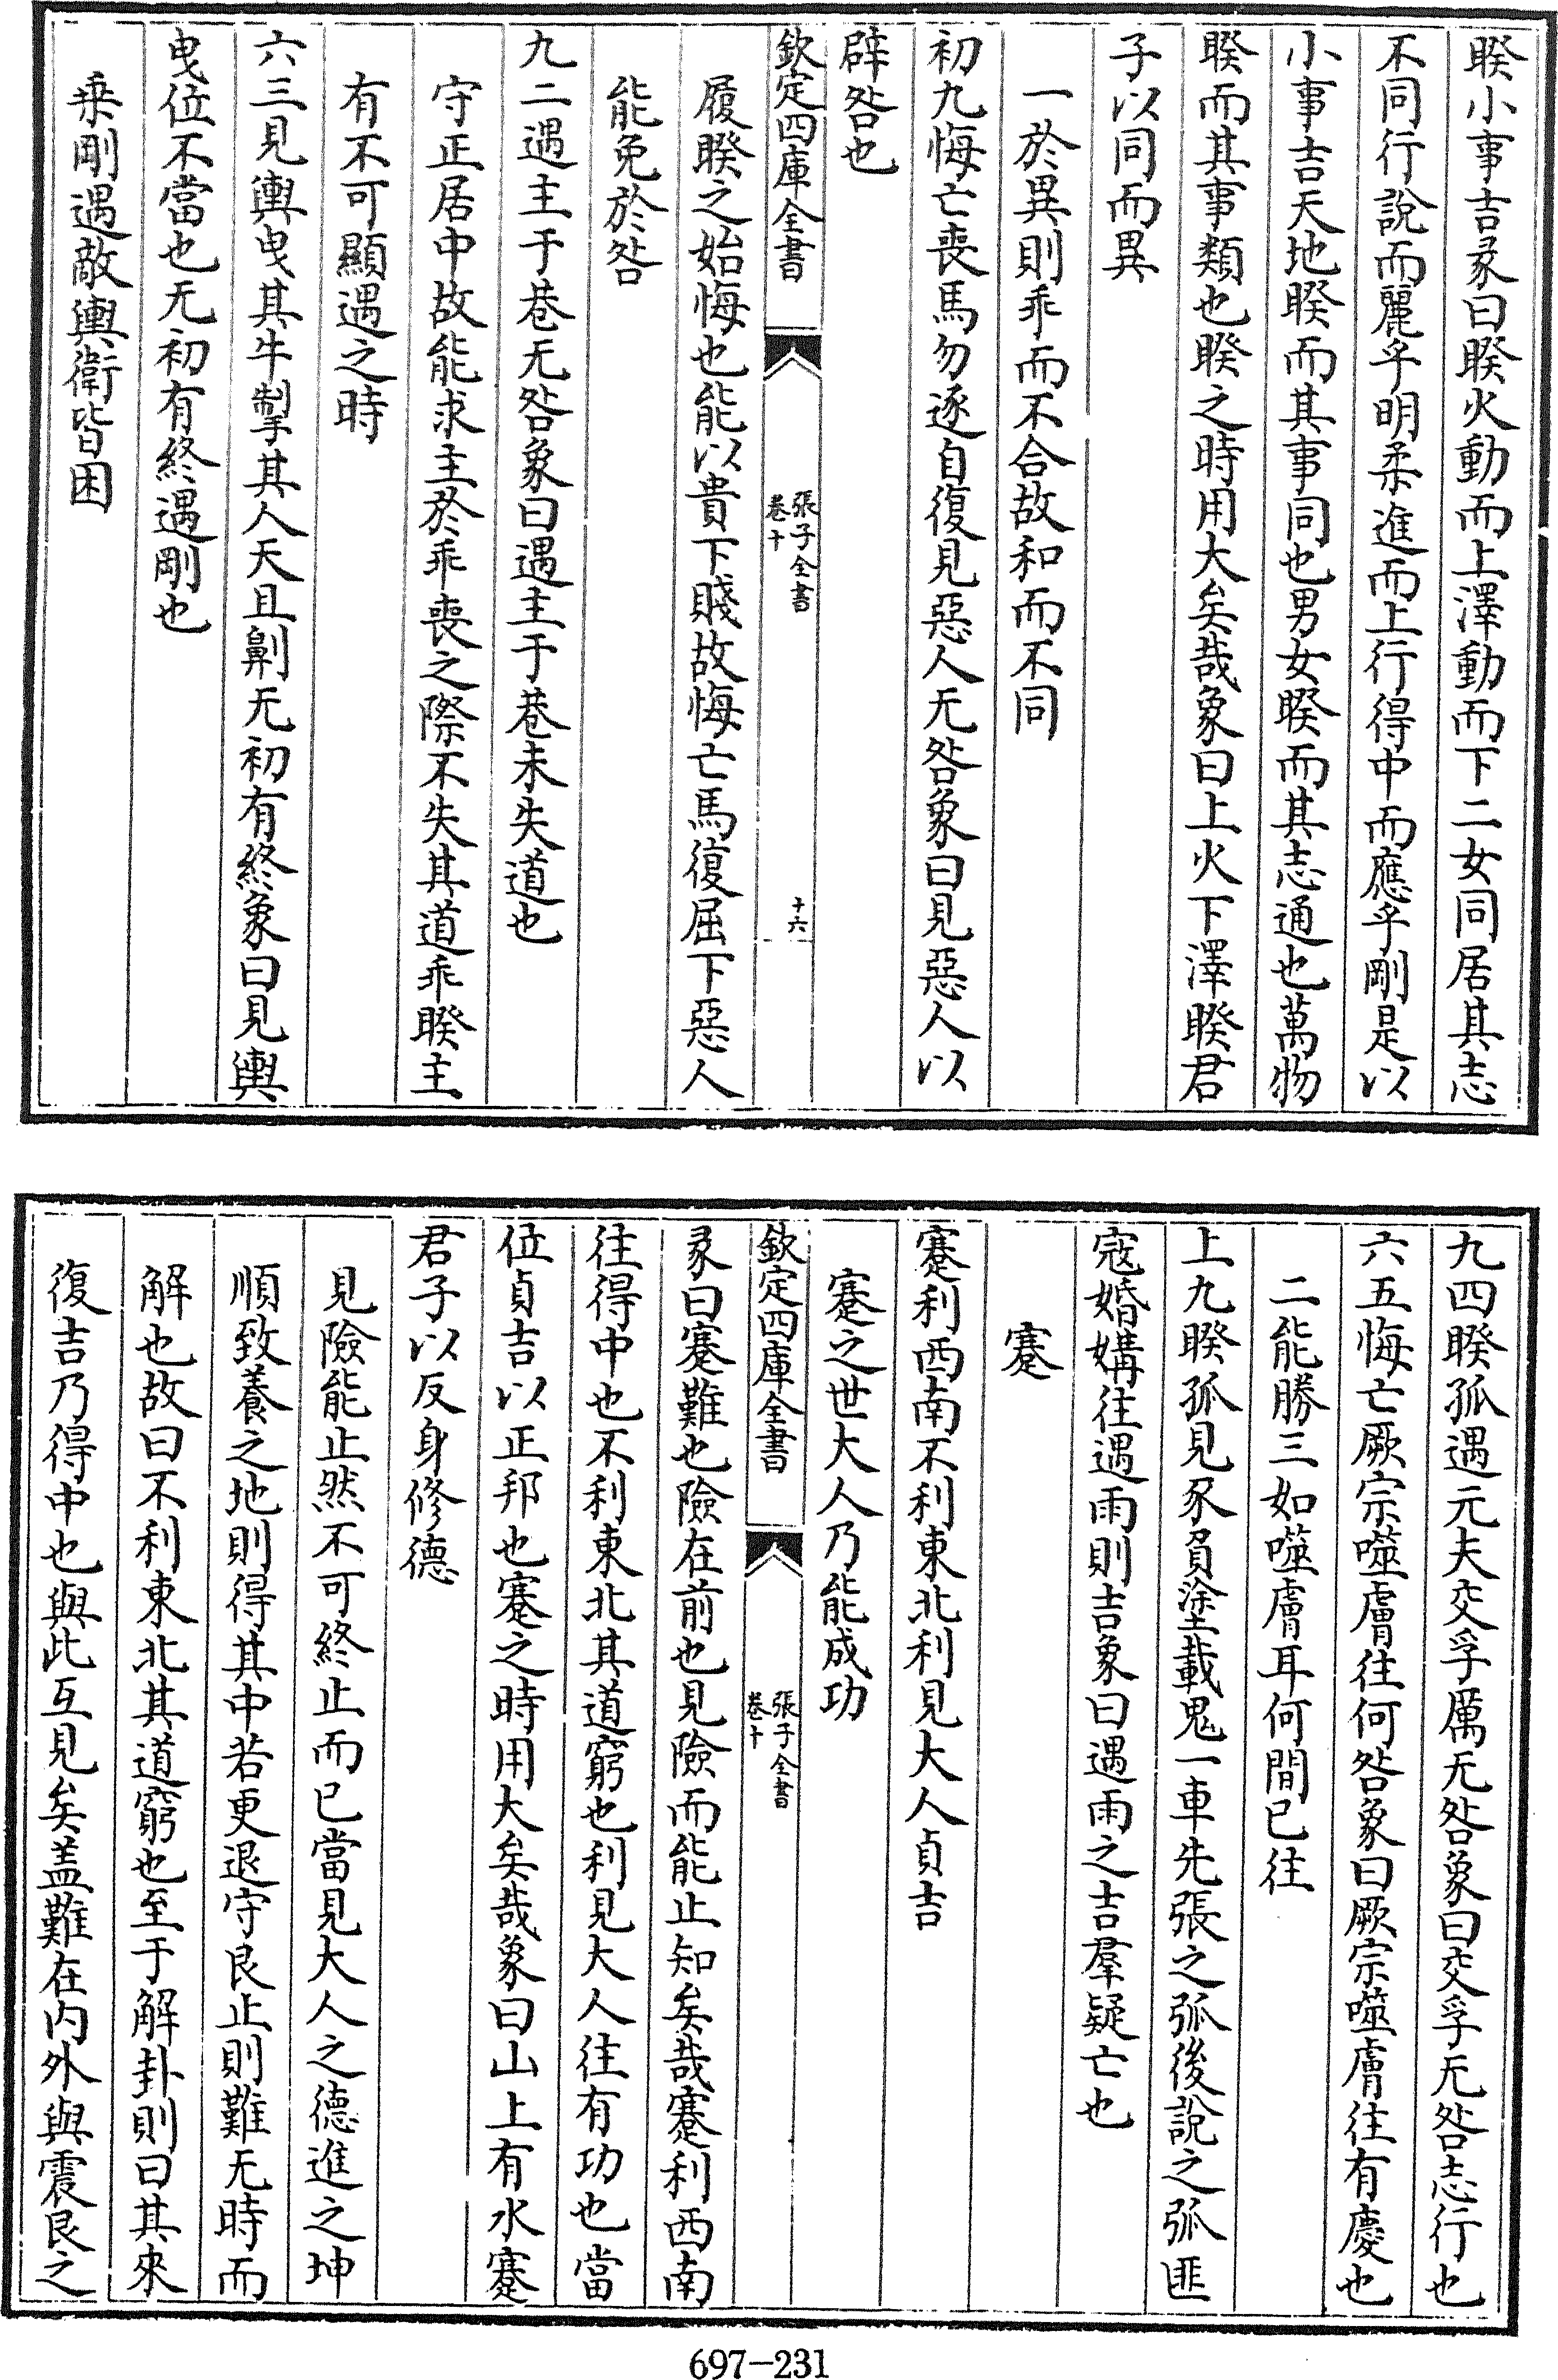 睽小事吉彖曰睽火動而上澤動而下二女同居其志
不同行說而麗乎明柔進而上行得中而應乎剛是以
小事吉天地睽而其事同也男女睽而其志通也萬物
睽而其事類也睽之時用大矣哉象曰上火下澤睽君
子以同而異
一於異則乖而不合故和而不同
初九悔亡喪馬勿逐自復見惡人无咎象曰見惡人以
辟咎也
欽定四庫全書
張子全書
卷十
十六
履睽之始悔也能以貴下賤故悔亡馬復屈下惡人
能免於咎
九二遇主于巷无咎象曰遇主于巷未失道也
守正居中故能求主於乖喪之際不失其道乖睽主
有不可顯遇之時
六三見輿曳其牛掣其人天且劓无初有終象曰見輿
曳位不當也无初有終遇剛也
乘剛遇敵輿衛皆困
九四睽孤遇元夫交孚厲无咎象曰交孚无咎志行也
六五悔亡厥宗噬膚往何咎象曰厥宗噬膚往有慶也
二能勝三如噬膚耳何間已往
上九睽孤見豕負塗載鬼一車先張之弧後說之弧匪
寇婚媾往遇雨則吉象曰遇雨之吉羣疑亡也
蹇
蹇利西南不利東北利見大人貞吉
蹇之世大人乃能成功
欽定四庫全書
張子全書
卷十
彖曰蹇難也險在前也見險而能止知矣哉蹇利西南
往得中也不利東北其道窮也利見大人往有功也當
位貞吉以正邦也蹇之時用大矣哉象曰山上有水蹇
君子以反身修德
見險能止然不可終止而已當見大人之德進之坤
順致養之地則得其中若更退守艮止則難无時而
解也故曰不利東北其道窮也至于解卦則曰其來
復吉乃得中也與此互見矣盖難在内外與震艮之
697-231